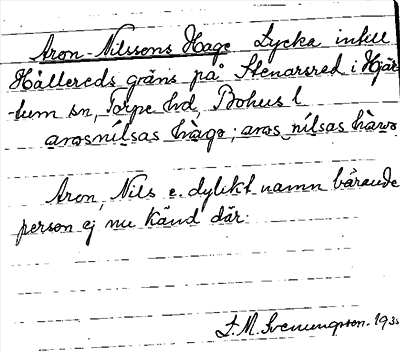 Aron-Nilssons Hage Lycka intill
Hållereds gräns på Stenarsred i Hjär-
-tum sn, Torpe hd, Bohus l
arosnílsas hàgə; aros nílsas hàwə
Aron, Nils e. dylikt namn bärande
person ej nu känd där.
F. M. Svenungsson. 193